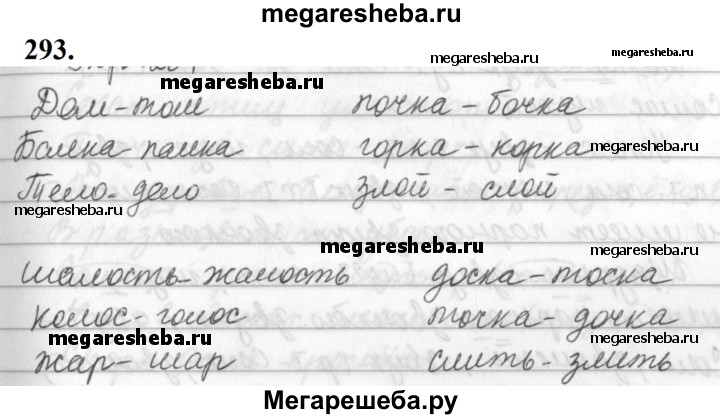 megaresheba.ru
293.
megaresheba.ru
megaresheba.ru
megaresheba.ru
Дом-том почка - бочка
Балка-палка горка - корка
megaresheba.ru
Тело-дело злой - слой
megaresheba.ru
megaresheba.ru
megaresheba.ru
шалость-жалость доска-тоска
колос-голос точка-дочка
megaresheba.ru
megaresheba.ru
жар-шар слить-злить
Мегарешеба.ру